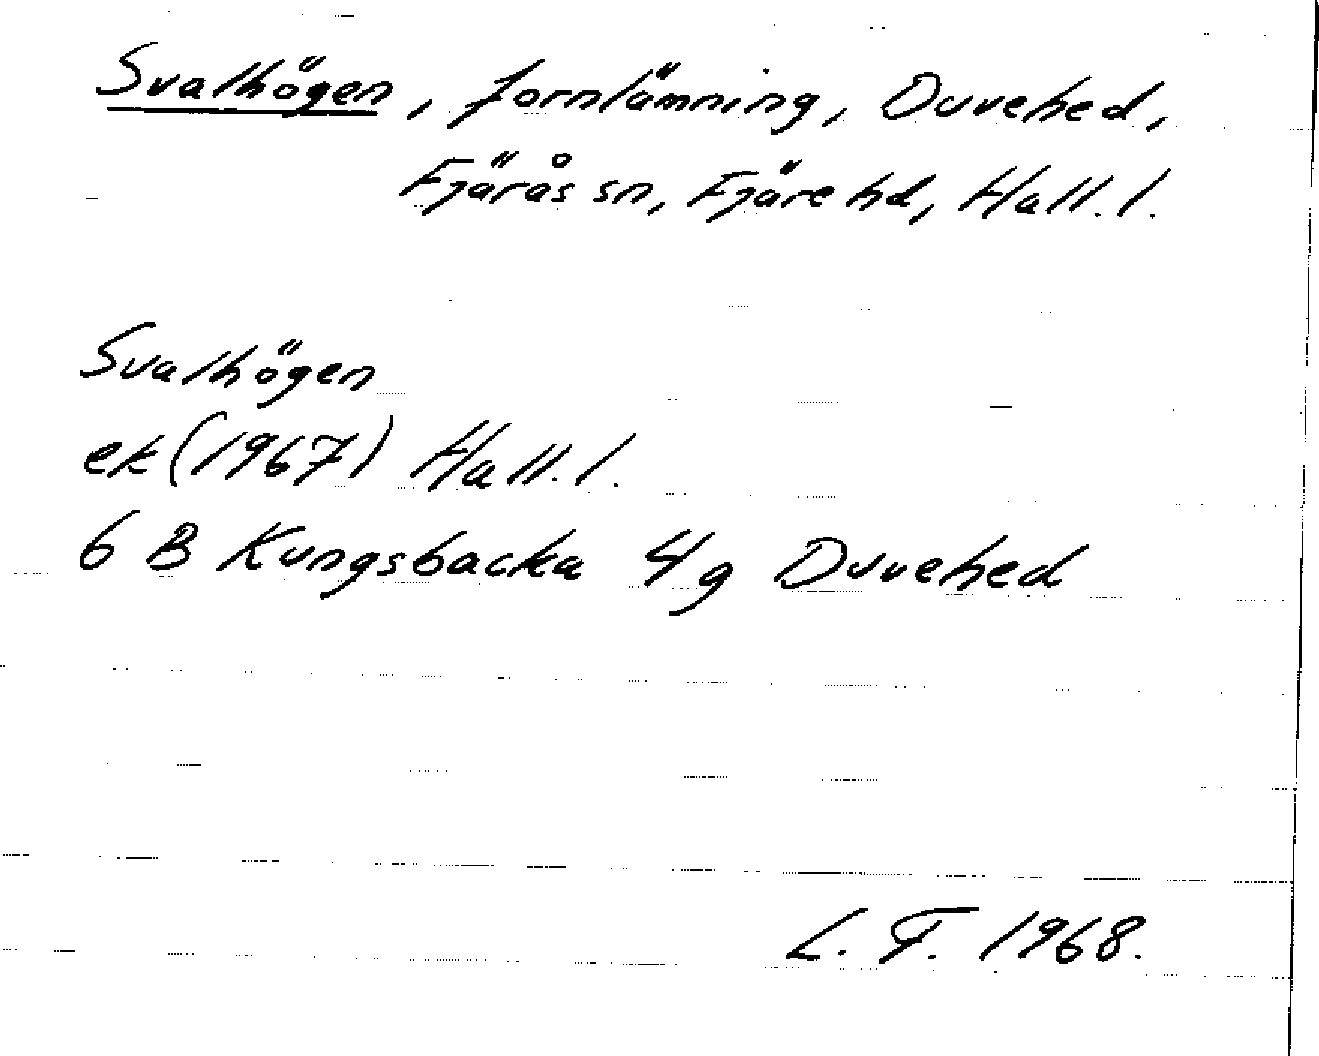 Svalhögen, fornlämning, Duvehed,
Fjärås sn, Fjäre hd, Hall. l.
Svalhögen
ek (1967) Hall. l.
6 B Kungsbacka 4g Duvehed
L. F. 1968.